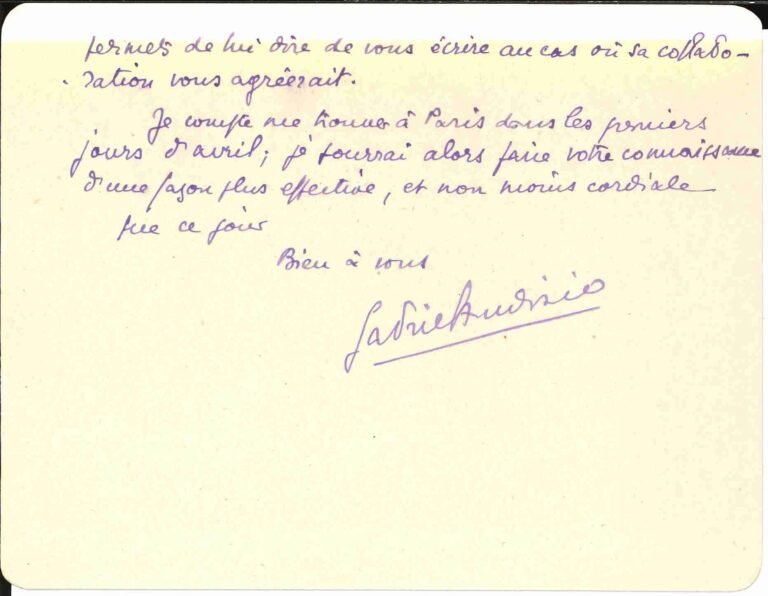 permets de lui dire de vous écrire au cas où sa collabo-
ration vous agréerait.
Je compte me trouver à Paris dans les premiers
jours d'avril; je pourrai alors faire votre connaissance
d'une façon plus effective, et non moins cordiale
que ce jour
Bien à vous
Gabriel Audisio